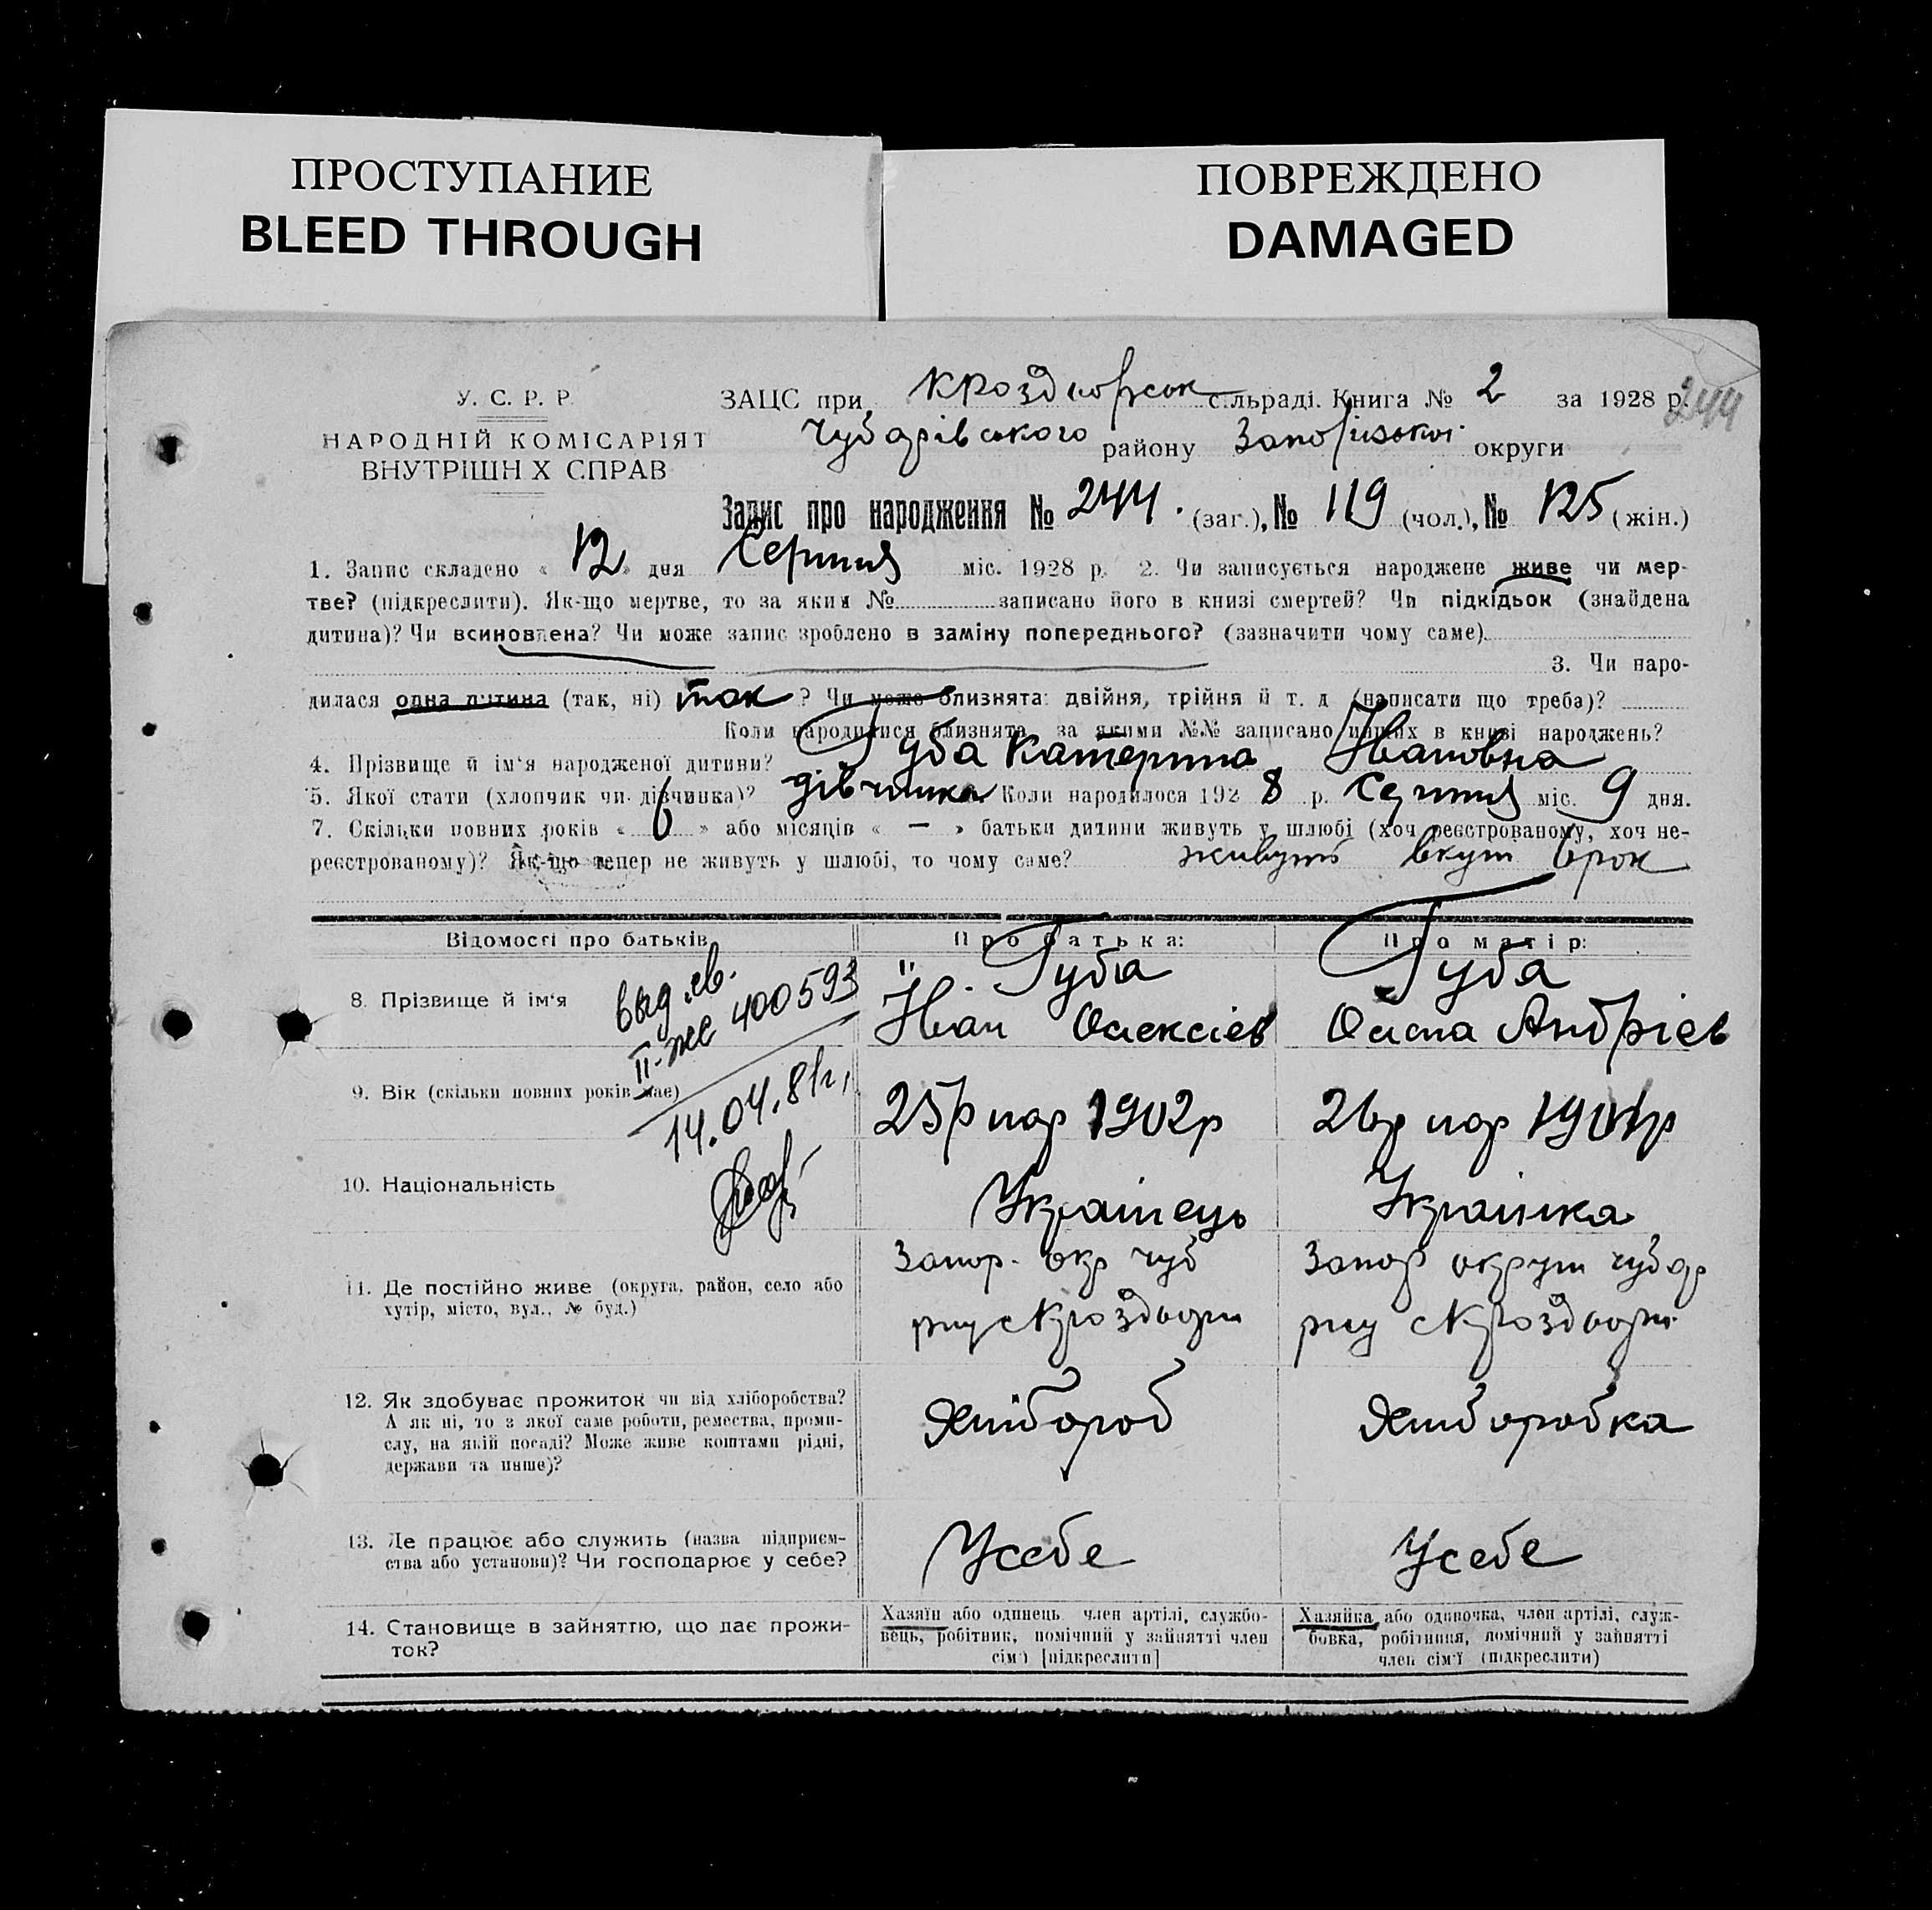 ПРОСТУПАНИЕ
BLEED THROUGH
ПОВРЕЖДЕНО
DAMAGED
У. С. Р. Р.
НАРОДНІЙ КОМІСАРІЯТ
ВНУТРІШН Х СПРАВ
ЗАЦС при Кроздпорськ сільраді. Книга № 2 за 1928 р. 244
Чубарівського району Запорізькоі округи
Запис про народження № 244. (заг.), № 119 (чол.), № 125 (жін.)
1. Запис складено « 12 » дня Серпня міс. 1928 р. 2. Чи записується народжене живе чи мер-
тве? (підкреслити). Як-що мертве, то за яким № записано його в книзі смертей? Чи підкідьок (знайдена
дитина)? Чи всиновлена? Чи може запис зроблено в заміну попереднього? (зазначити чому саме)
3. Чи наро-
дилася одна дитина (так, ні) так ? Чи може близнята: двійня, трійня й т. д. (написати що треба)?
Коли народилися близнята, за якими №№ записано инших в книзі народжень?
4. Прізвище й ім'я народженої дитини? Губа Катерина Івановна
5. Якої стати (хлопчик чи дівчинка)? дівчинка Коли народилося 192 8 р. Серпня міс. 9 дня.
7. Скільки повних років « 6 » або місяців « — » батьки дитини живуть у шлюбі (хоч реєстрованому, хоч не-
реєстрованому)? Як-що тепер не живуть у шлюбі, то чому саме? живуть вкуп 6 рок
Відомості про батьків
Про батька:
Про матір:
8. Прізвище й ім'я
выд св.
II-жс 400593
14.04.81г.
Губа
Іван Олексіев
Губа
Андрієв
9. Вік (скільки повних років має)
25р нар 1902р
26р нар 1901р
10. Національність
Українець
Українка
11. Де постійно живе (округа, район, село або
хутір, місто, вул., № буд.)
Запор. окр чуб
Запор округи чубар
12. Як здобуває прожиток чи від хліборобства?
А як ні, то з якої саме роботи, ремества, проми-
слу, на якій посаді? Може живе коштами рідні,
держави та инше)?
Хлібороб
Хлиборобка
13. Де працює або служить (назва підприєм-
ства або установи)? Чи господарює у себе?
Усебе
Усебе
14. Становище в зайняттю, що дає прожи-
ток?
Хазяїн або одинець член артілі, службо-
вець, робітник, помічний у зайнятті член
сім'ї [підкреслити]
Хазяйка або одиночка, член артілі, служ-
бовка, робітниця, помічний у зайнятті
член сім'ї (підкреслити)